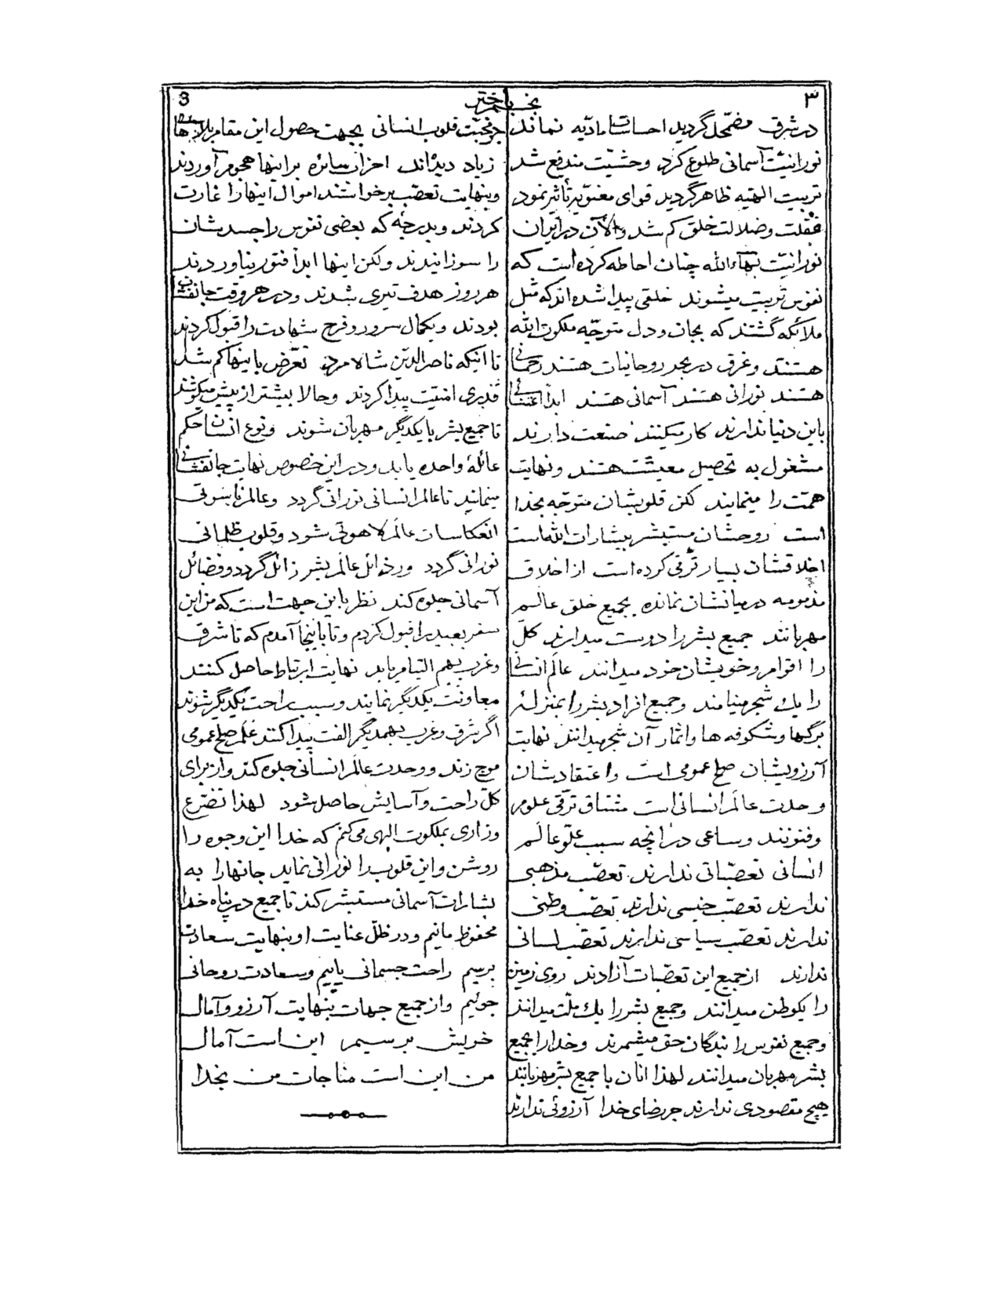 ۳
نجم باختر
3
در شرق مضمحل گردید احساسات مادیه نماند
نورانیت آسمانی طلوع کرد وحشیّت مندفع شد
تربیت الهیّه ظاهر گردید قوای معنویّه تأثیر نمود
غفلت و ضلالت خلق کم شد والآن در ایران
نورانیّت بهاءالله چنان احاطه کرده است که
نفوس تربیت میشوند خلقی پیدا شده اند که مثل
ملائکه گشتند که بجان و دل متوجّه ملکوت الله
هستند وغرق در بحر روحانیات هستند رحمانی
هستند نورانی هستند آسمانی هستند ابداً اعتنائی
باین دنیا ندارند کار میکنند صنعت دارند
مشغول به تحصیل معیشت هستند ونهایت
همّت را مینمایند لکن قلوبشان متوجّه بخدا
است روحشان مستبشر ببشارات الله است
اخلاقشان بسیار ترقّی کرده است از اخلاق
مذمومه در میانشان نمانده بجمیع خلق عالم
مهربانند جمیع بشر را دوست میدارند کلّ
را اقوام و خویشان خود میدانند عالم انسانی
را یك شجر مینامند وجمیع افراد بشر را بمنزلهٔ
برگها و شکوفه ها و اثمار آن شجر میدانند نهایت
آرزویشان صلح عمومی است و اعتقادشان
وحدت عالم انسانی است مشتاق ترقّی علوم
و فنونند وساعی در آنچه سبب علوّ عالم
انسانی تعصّباتی ندارند تعصّب مذهبی
ندارند تعصّب جنسی ندارند تعصّب وطنی
ندارند تعصّب سیاسی ندارند تعصّب لسانی
ندارند از جمیع این تعصّبات آزادند روی زمین
را یکوطن میدانند وجمیع بشر را یك ملّت میدانند
وجمیع نفوس را بندگان حق میشمرند وخدا را بجمیع
بشر مهربان میدانند لهذا آنان با جمیع بشر مهربانند
هیچ مقصودی ندارند جز رضای خدا آرزوئی ندارند
جز محبّت قلوب انسانی بجهت حصول این مقام بلاها
زیاد دیدند احزاب سائره بر اینها هجوم آوردند
وبنهایت تعصّب برخواستند اموال اینها را غارت
کردند وبدرجهٔ که بعضی نفوس را جسدشان
را سوزانیدند ولکن اینها ابداً فتور نیاوردند
هر روز هدف تیری شدند ودر هر وقت جانفشانی
بودند وبکمال سرور و فرح شهادت را قبول کردند
تا اینکه ناصرالدین شاه مرد تعرّض باینها کم شد
قدری امنیّت پیدا کردند وحالا بیشتر از پیش میکوشند
تا جمیع بشر با یکدیگر مهربان شوند ونوع انسان حکم
عائلهٔ واحده یابد ودر این خصوص نهایت جانفشانی
مینمایند تا عالم انسانی نورانی گردد وعالم ناسوتی
انعکاسات عالم لاهوتی شود وقلوب ظلمانی
نورانی گردد ورذائل عالم بشر زائل گردد وفضائل
آسمانی جلوه کند نظر باین جهت است که من این
سفر بعید را قبول کردم وتا باینجا آمدم که تا شرق
وغرب بهم التیام یابد نهایت ارتباط حاصل کنند
معاونت یکدیگر نمایند وسبب راحت یکدیگر شوند
اگر شرق وغرب بهمدیگر الفت پیدا کنند علم صلح عمومی
موج زند ووحدت عالم انسانی جلوه کند واز برای
کلّ راحت وآسایش حاصل شود لهذا تضرّع
وزاری بملکوت الهی می کنم که خدا این وجوه را
روشن واین قلوب را نورانی نماید جانها را به
بشارات آسمانی مستبشر کند تا جمیع در پناه خدا
محفوظ مانیم ودر ظلّ عنایت او بنهایت سعادت
برسیم راحت جسمانی یابیم وسعادت روحانی
جوئیم واز جمیع جهات بنهایت آرزو وآمال
خویش برسیم این است آمال
من این است مناجات من بخدا